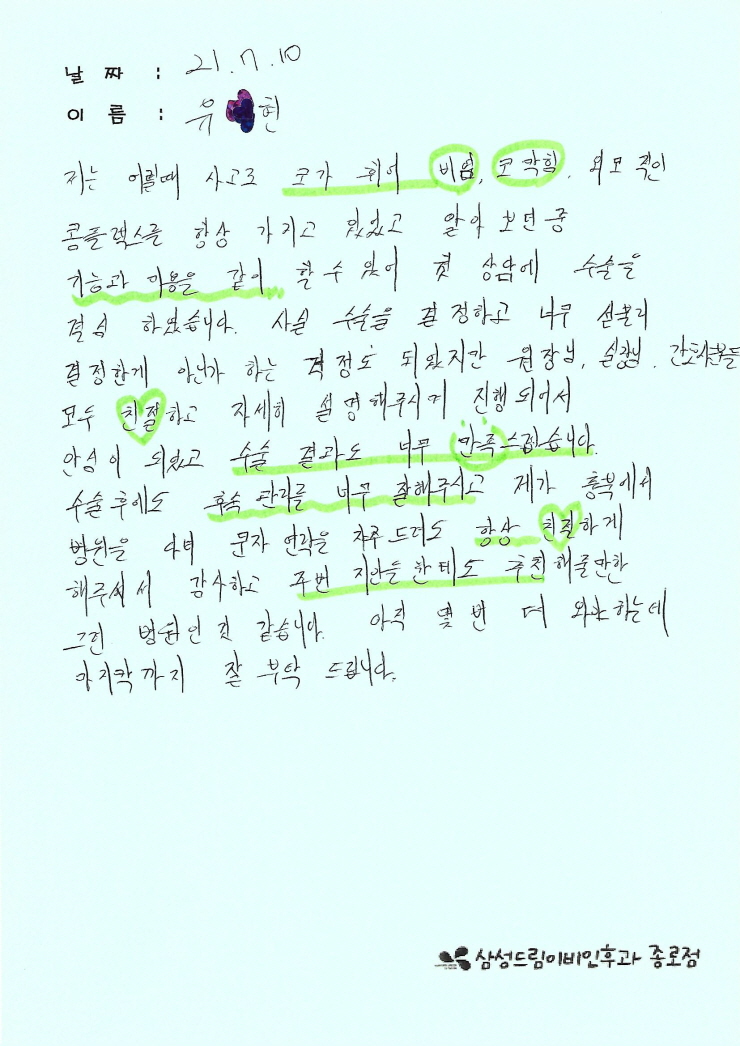 날 짜 : 21.7.10
이 름 : 유 현
저는 어릴때 사고로 코가 휘어 비염, 코막힘, 외모적인
콤플렉스를 항상 가지고 있었고 알아 보던 중
기능과 미용을 같이 할 수 있어 첫 상담에 수술을
결심 하였습니다. 사실 수술을 결정하고 너무 섣불리
결정한게 아닌가 하는 걱정도 되었지만 원장님, 실장님, 간호사분들
모두 친절하고 자세히 설명해주시며 진행되어서
안심이 되었고 수술 결과도 너무 만족스럽습니다.
수술 후에도 후속 관리를 너무 잘해주시고 제가 충북에서
병원을 다녀 문자 연락을 자주 드려도 항상 친절하게
해주셔서 감사하고 주변 지인들한테도 추천해줄만한
그런 병원인 것 같습니다. 아직 몇 번 더 와야하는데
마지막까지 잘 부탁 드립니다.
삼성드림이비인후과 종로점